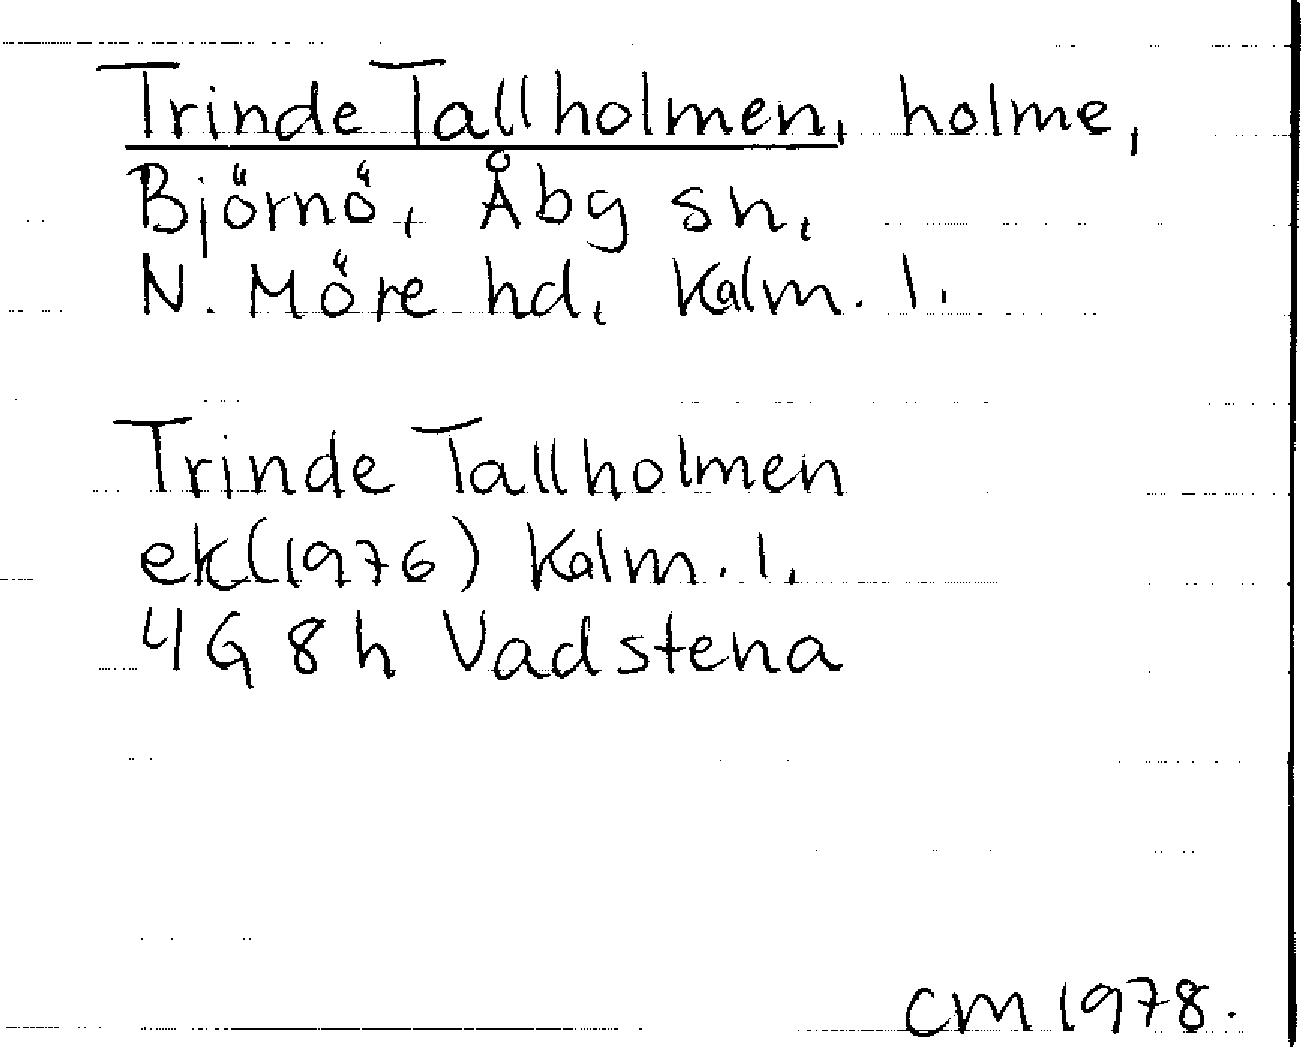 Trinde Tallholmen, holme,
Björnö, Åbg sn,
N. Möre hd, Kalm. l.
Trinde Tallholmen
ek(1976) Kalm. l.
4G 8h Vadstena
CM 1978.